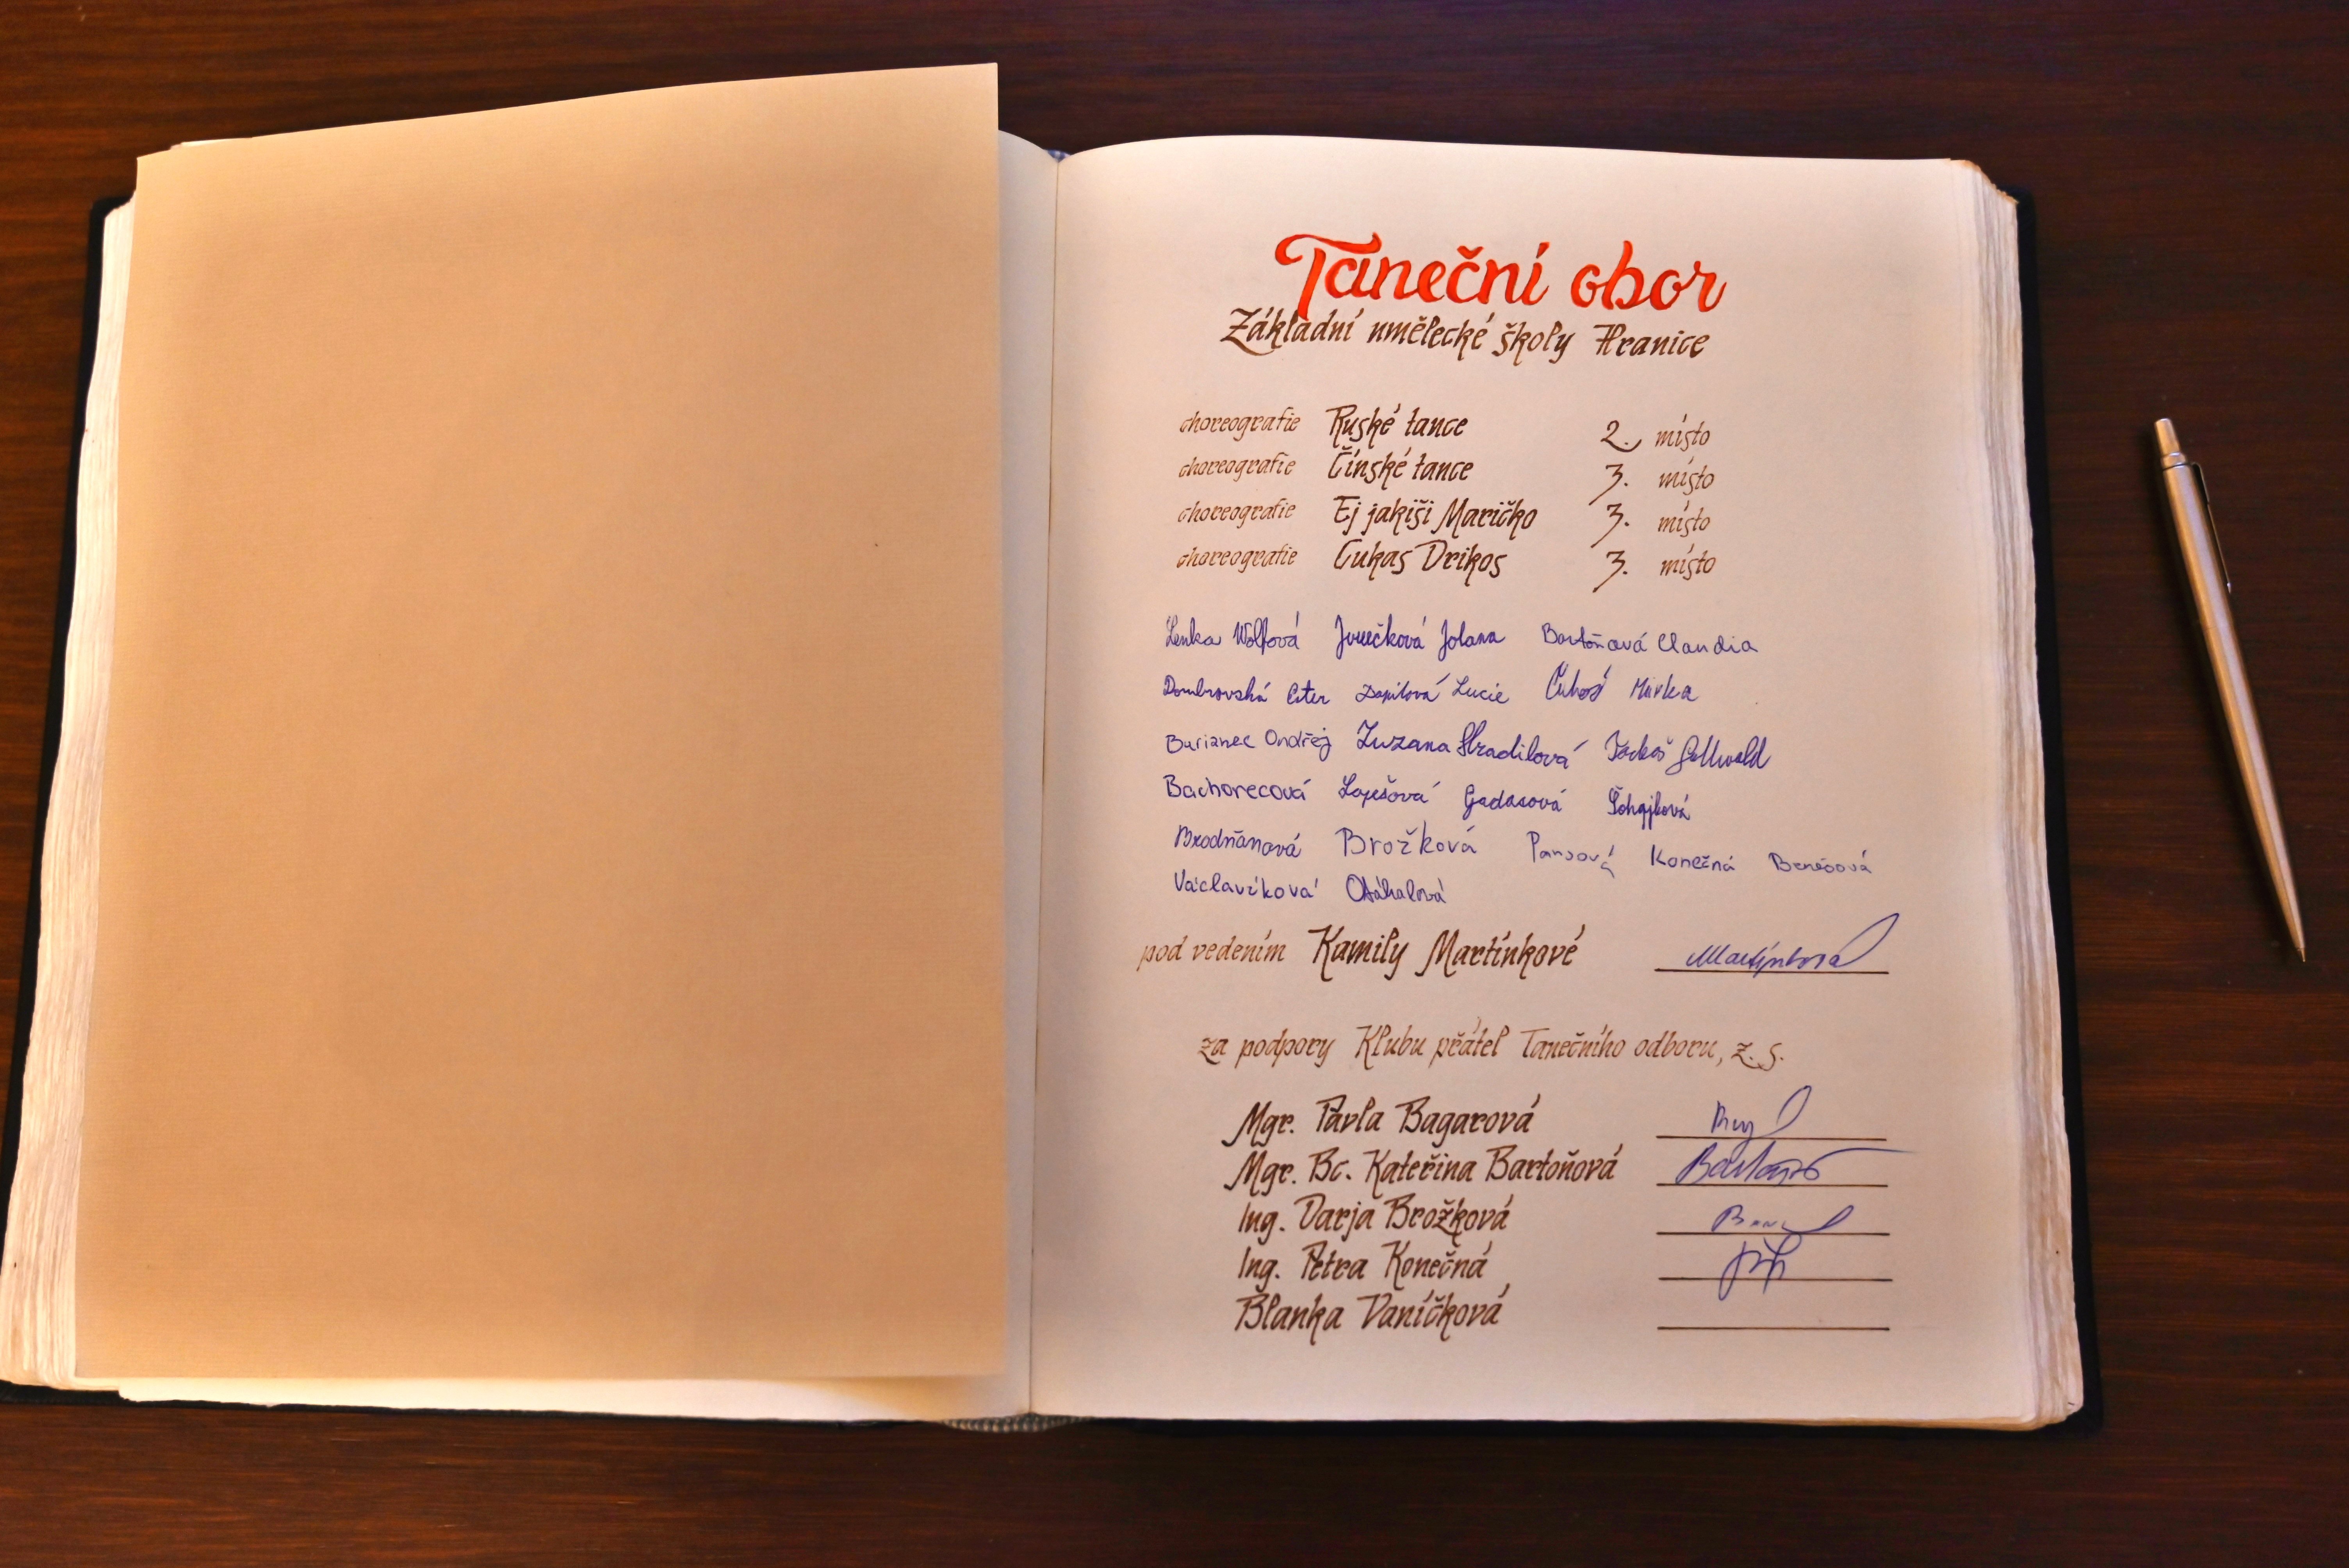 Taneční obor
Základní umělecké školy Hranice
choreografie Ruské tance 2. místo
choreografie Čínské tance 3. místo
choreografie Ej jakiši Maričko 3. místo
choreografie Cukas Drikos 3. místo
Lenka Wolfová Jurečková Jolana Bartoňová Claudia
Dombrovská Ester Danilová Lucie Mirka
Burianec Ondřej Zuzana Stradilová Gottwald
Bachorecová Lopešová Gadasová
Brodňanová Brožková Pansová Konečná Benešová
Václavíková Otáhalová
pod vedením Kamily Martínkové Martínková
za podpory Klubu přátel Tanečního odboru, z. s.
Mgr. Pavla Bagarová
Mgr. Bc. Kateřina Bartoňová
Ing. Darja Brožková
Ing. Petra Konečná
Blanka Vaníčková